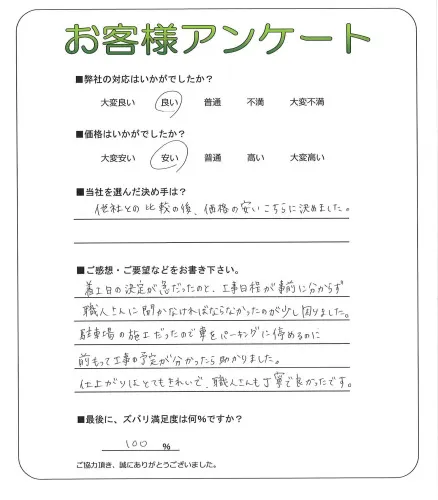 お客様アンケート
■弊社の対応はいかがでしたか？
大変良い 良い 普通 不満 大変不満
■価格はいかがでしたか？
大変安い 安い 普通 高い 大変高い
■当社を選んだ決め手は？
他社との比較の後、価格の安いこちらに決めました。
■ご感想・ご要望などをお書き下さい。
着工日の決定が急だったのと、工事日程が事前に分からず
職人さんに聞かなければならなかったのが少し困りました。
駐車場の施工だったので車をパーキングに停めるのに
前もって工事の予定が分かったら助かりました。
仕上がりはとてもきれいで、職人さんも丁寧で良かったです。
■最後に、ズバリ満足度は何%ですか？
100 %
ご協力頂き、誠にありがとうございました。